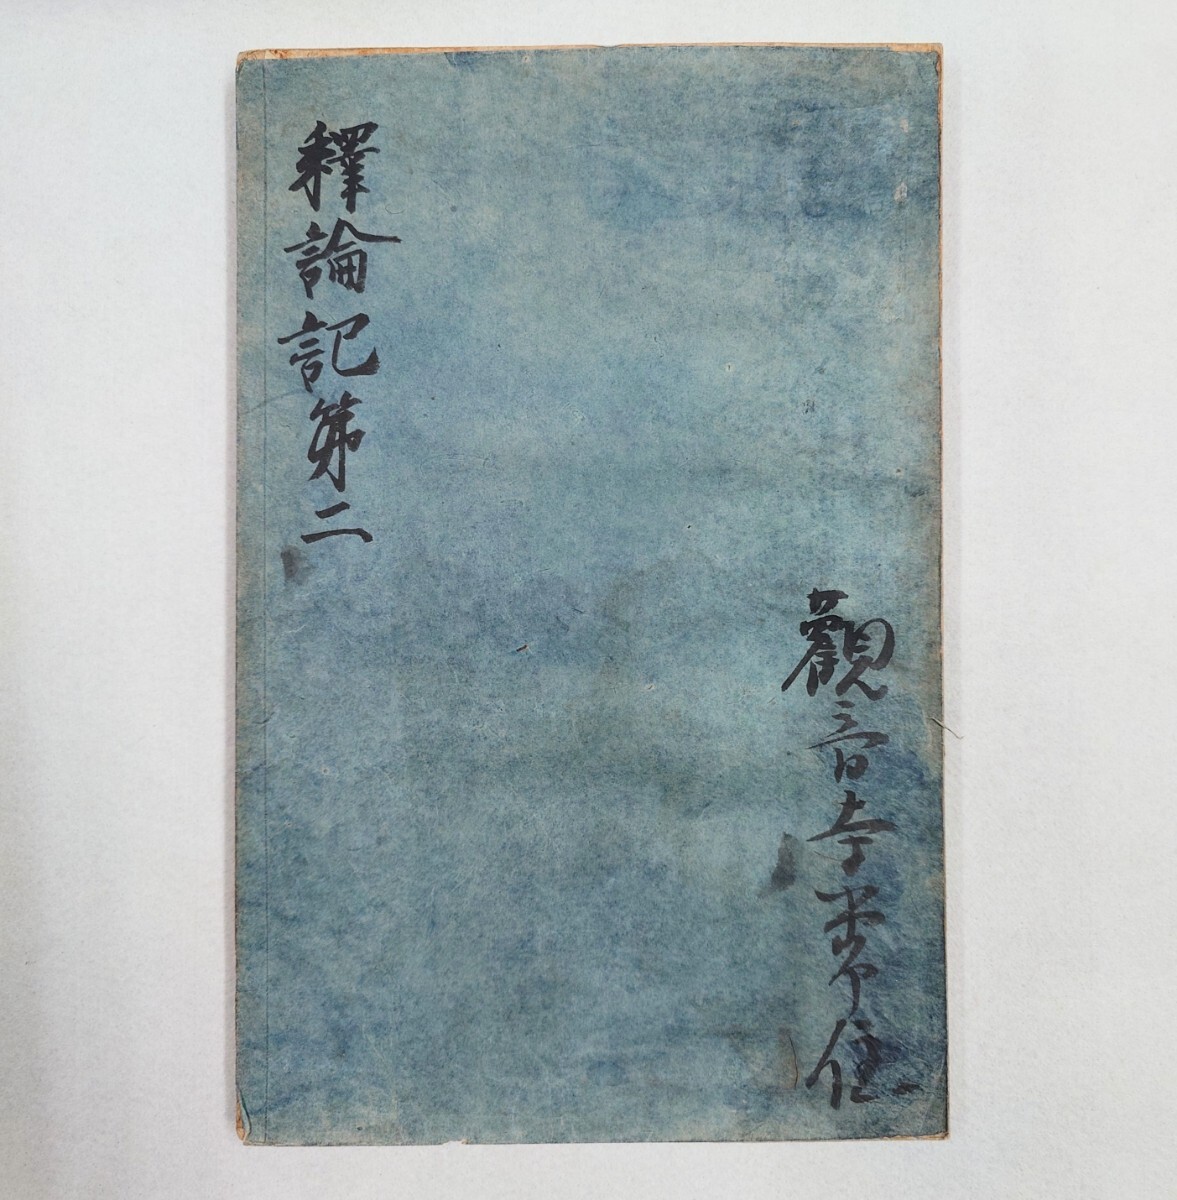 釋論記第二
觀音寺常住